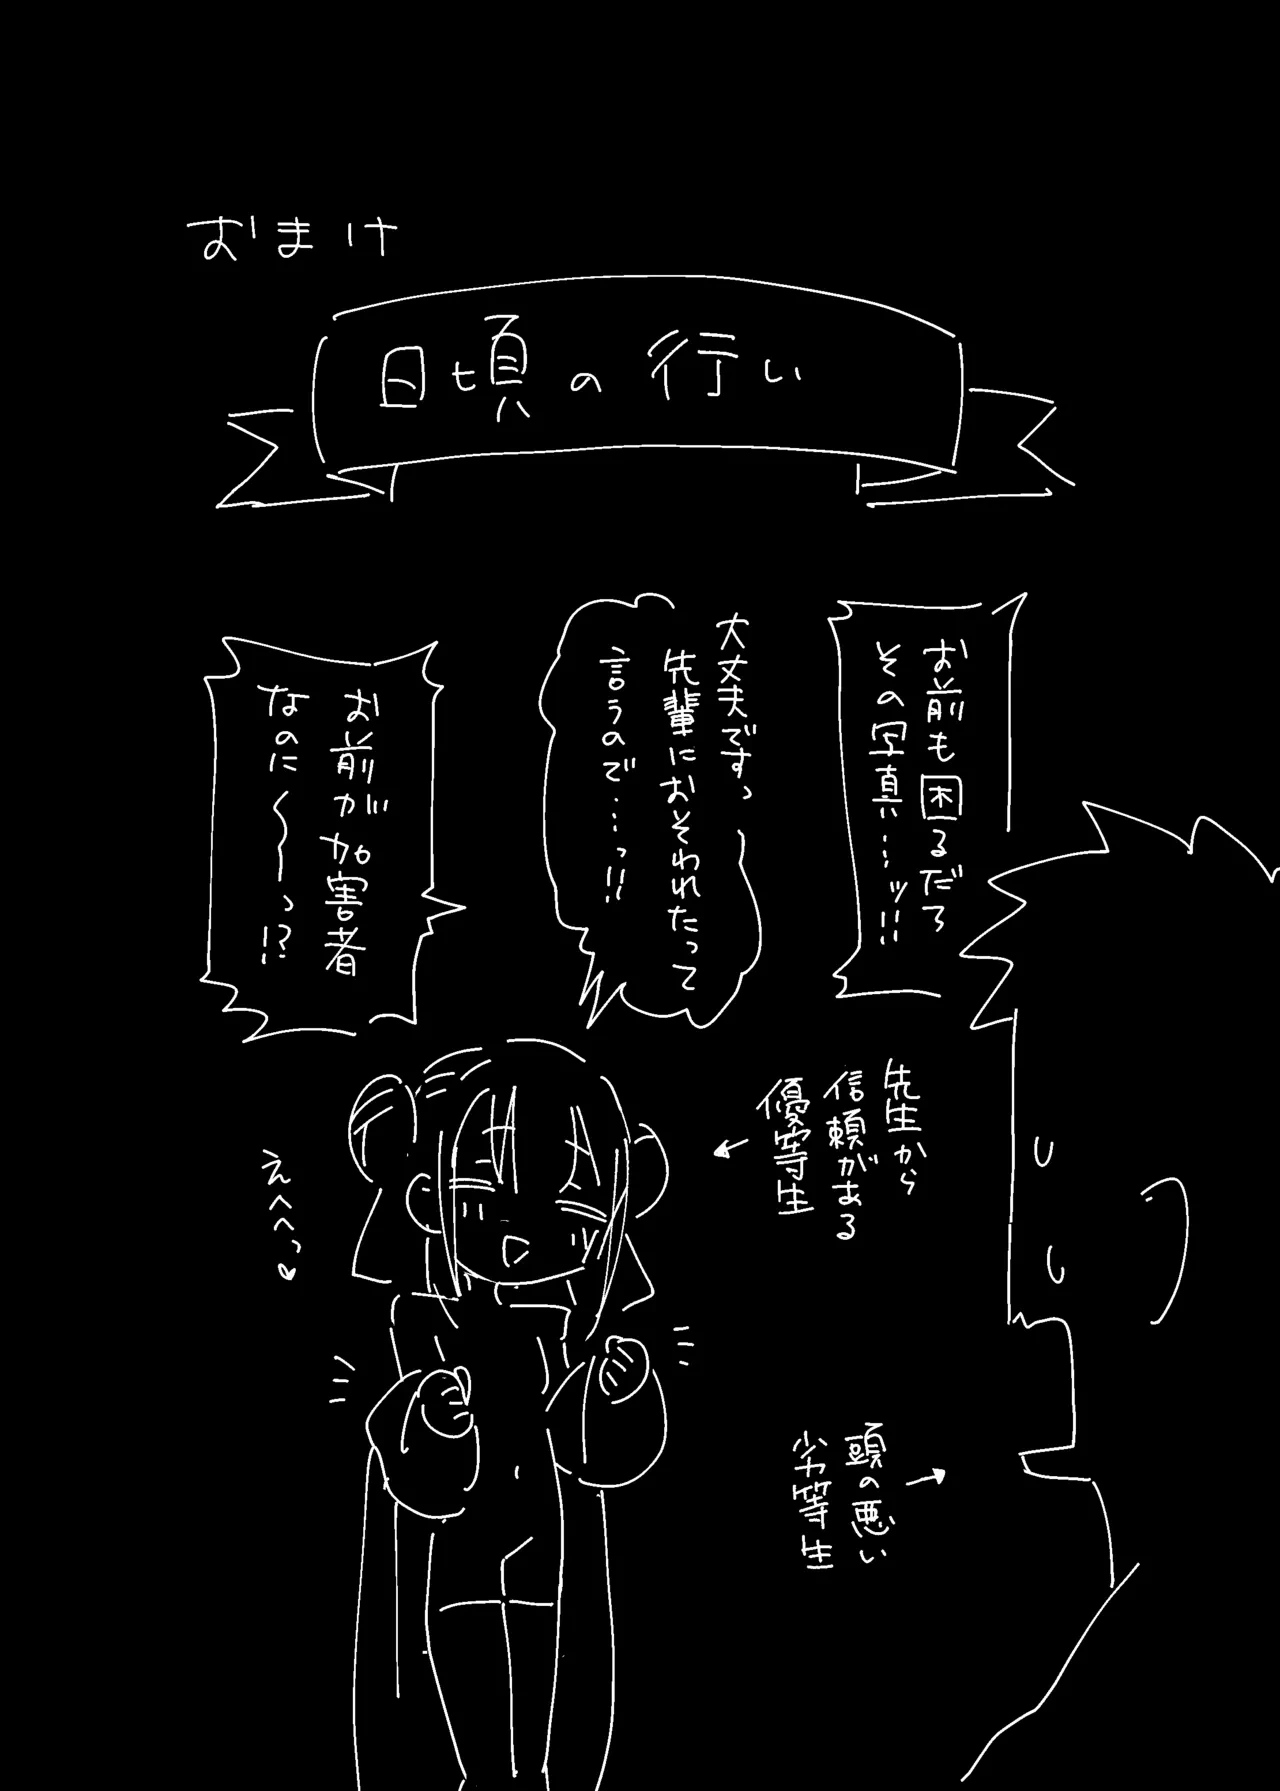 おまけ
日頃の行い
お前も困るだろ
その写真…ッ!!
大丈夫ですっ
先輩におそわれたって
言うので…っ!!
お前が加害者
なのに〜〜っ!?
先生から
信頼がある
優等生
えへへっ♡
頭の悪い
劣等生